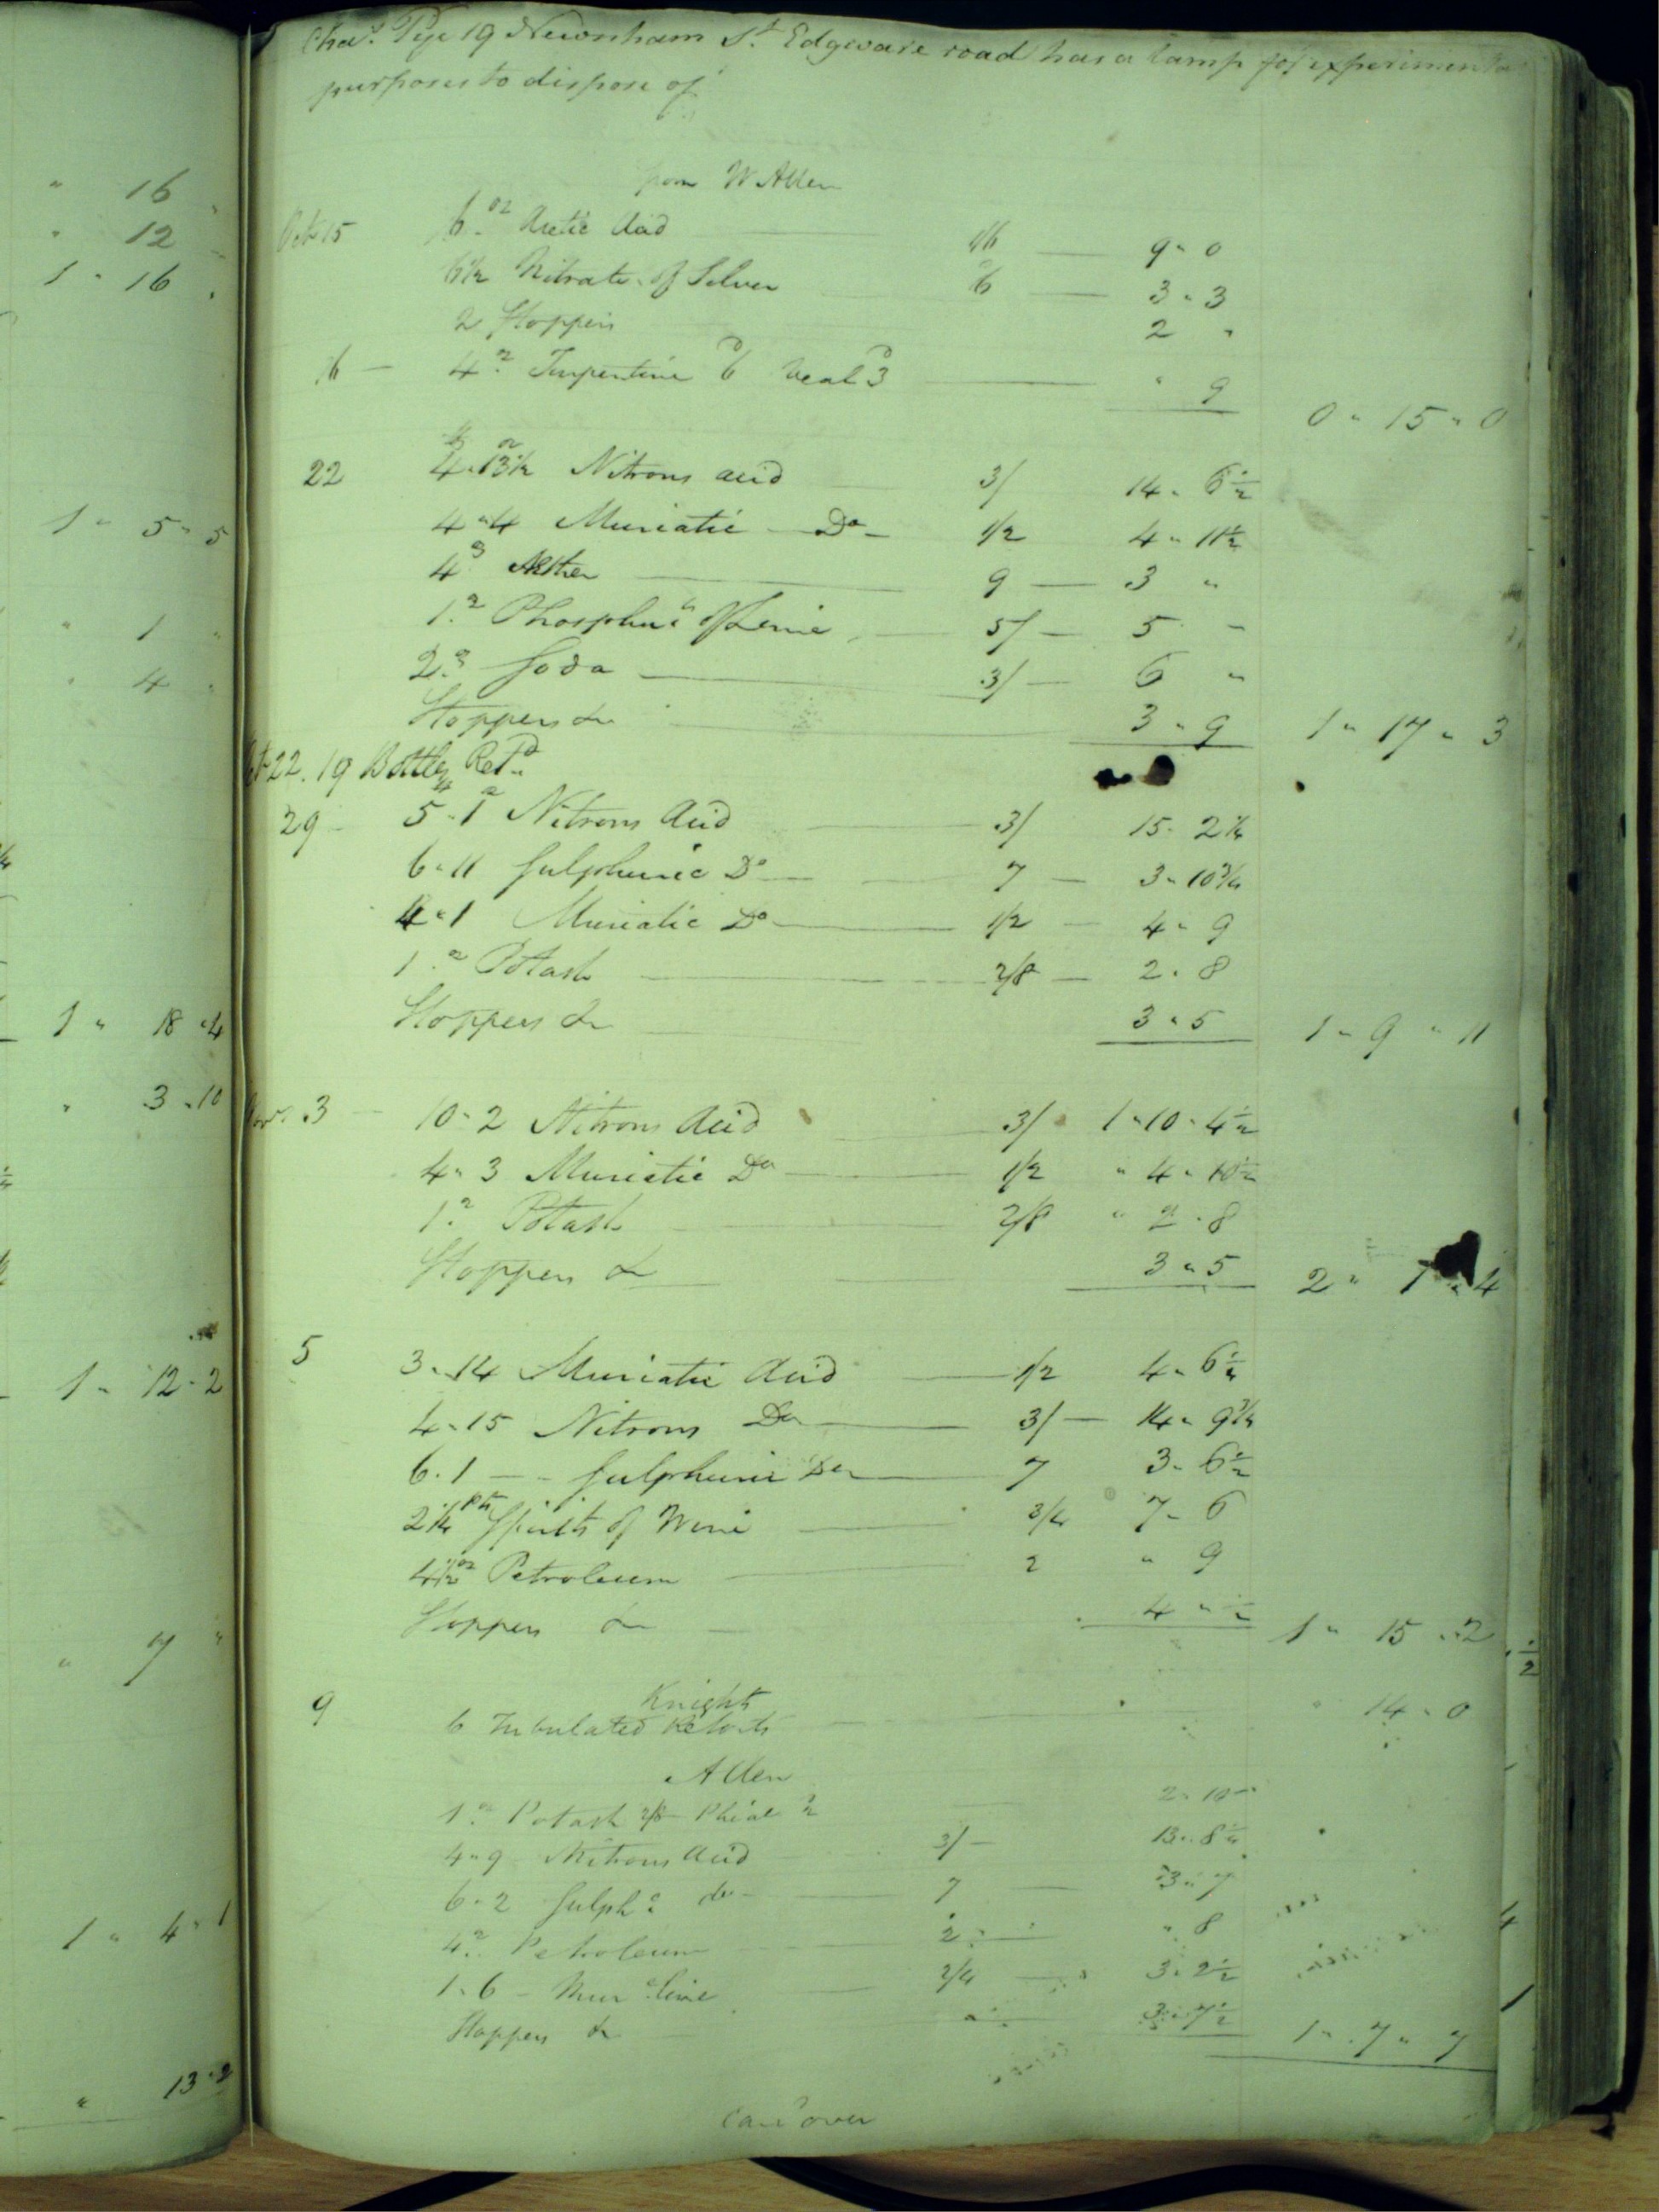 " 16 "
" 12
1 " 16 "
1 " 5 " 5
" 1 "
" 4 "
1 " 18 " 4
" 3 " 10
1 " 12 " 2
" 7 "
1 " 4 " 1
" 13 " 2
Chas. Pye 19 Newnham St. Edgware road has a lamp for experimental
purposes to dispose of
from W Allen
Oct 15 6 oz Acetic Acid 1/6 9 " 0
6½ Nitrate of Silver 6 3 " 3
2 Stoppers 2 "
16 — 4 oz Turpentine 6d Veal 3d " 9 0 " 15 " 0
22 4 " 13½ Nitrous acid 3/ 14 " 6½
4 " 4 Muriatic Do 1/2 4 " 11½
4 oz Æther 9 3 "
1 oz Phosphut of Lime 5/ 5 "
2 oz Soda 3/ 6 "
Stoppers &c 3 " 9 1 " 17 " 3
Oct 22. 19 Bottles Retd
29 5 " 1 Nitrous Acid 3/ 15 " 2¼
6 " 11 Sulphuric Do 7 3 " 10¾
4 " 1 Muriatic Do 1/2 4 " 9
1 oz Potash 2/8 2 " 8
Stoppers &c 3 " 5 1 " 9 " 11
Nov. 3 10 " 2 Nitrous Acid 3/ 1 " 10 " 4½
4 " 3 Muriatic Do 1/2 " 4 " 10½
1 oz Potash 2/8 " 2 " 8
Stoppers &c 3 " 5 2 " 1 " 4
5 3 " 14 Muriatic Acid 1/2 4 " 6¼
4 " 15 Nitrous Do 3/ 14 " 9¾
6 " 1 Sulphuric Do 7 3 " 6½
2¼ pts Spirits of Wine 3/4 7 " 6
4½ oz Petroleum 2 " 9
Stoppers &c 4 " ½ 1 " 15 " 2 ½
9 Knights
6 Tubulated Retorts " 14 " 0
Allen
1 oz Potash 2/8 Phial 2 2 " 10
4 " 9 Nitrous Acid 3/ 13 " 8¼
6 " 2 Sulphc do 7 3 " 7
4 oz Petroleum 2 " 8
1 " 6 Mur. Lime 2/4 3 " 2½
Stoppers &c 3 " 7½ 1 " 7 " 7
Card over